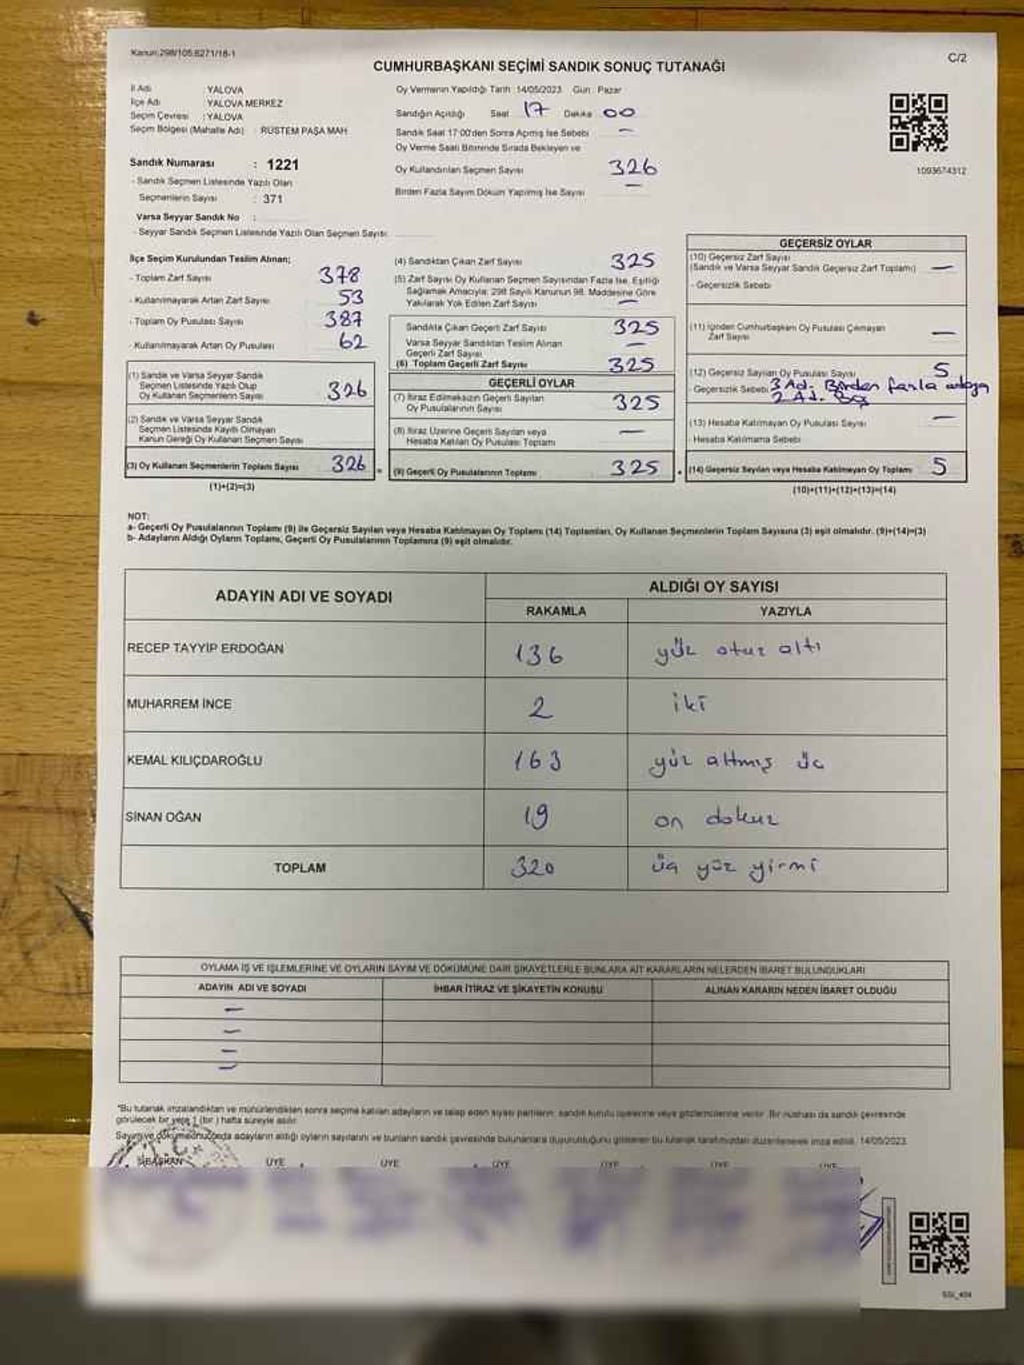 Kanun:298/105;6271/18-1
C/2
CUMHURBAŞKANI SEÇİMİ SANDIK SONUÇ TUTANAĞI
İl Adı : YALOVA
İlçe Adı : YALOVA MERKEZ
Seçim Çevresi : YALOVA
Seçim Bölgesi (Mahalle Adı) : RÜSTEM PAŞA MAH
Sandık Numarası : 1221
- Sandık Seçmen Listesinde Yazılı Olan
Seçmenlerin Sayısı : 371
Varsa Seyyar Sandık No :
- Seyyar Sandık Seçmen Listesinde Yazılı Olan Seçmen Sayısı:
Oy Vermenin Yapıldığı Tarih :14/05/2023 Gün : Pazar
Sandığın Açıldığı Saat 17 Dakika 00
Sandık Saat 17:00'den Sonra Açmış İse Sebebi —
Oy Verme Saati Bitiminde Sırada Bekleyen ve
Oy Kullandırılan Seçmen Sayısı 326
Birden Fazla Sayım Döküm Yapılmış İse Sayısı —
1093674312
İlçe Seçim Kurulundan Teslim Alınan;
- Toplam Zarf Sayısı 378
- Kullanılmayarak Artan Zarf Sayısı 53
- Toplam Oy Pusulası Sayısı 387
- Kullanılmayarak Artan Oy Pusulası 62
(1) Sandık ve Varsa Seyyar Sandık
Seçmen Listesinde Yazılı Olup
Oy Kullanan Seçmenlerin Sayısı 326
(2) Sandık ve Varsa Seyyar Sandık
Seçmen Listesinde Kayıtlı Olmayan
Kanun Gereği Oy Kullanan Seçmen Sayısı
(3) Oy Kullanan Seçmenlerin Toplam Sayısı 326
(1)+(2)=(3)
(4) Sandıktan Çıkan Zarf Sayısı 325
(5) Zarf Sayısı Oy Kullanan Seçmen Sayısından Fazla İse, Eşitliği
Sağlamak Amacıyla; 298 Sayılı Kanunun 98. Maddesine Göre
Yakılarak Yok Edilen Zarf Sayısı —
Sandıkta Çıkan Geçerli Zarf Sayısı 325
Varsa Seyyar Sandıktan Teslim Alınan
Geçerli Zarf Sayısı —
(6) Toplam Geçerli Zarf Sayısı 325
GEÇERLİ OYLAR
(7) İtiraz Edilmeksizin Geçerli Sayılan
Oy Pusulalarının Sayısı 325
(8) İtiraz Üzerine Geçerli Sayılan veya
Hesaba Katılan Oy Pusulası Toplamı —
(9) Geçerli Oy Pusulalarının Toplamı 325
GEÇERSİZ OYLAR
(10) Geçersiz Zarf Sayısı
(Sandık ve Varsa Seyyar Sandık Geçersiz Zarf Toplamı) —
- Geçersizlik Sebebi
(11) İçinden Cumhurbaşkanı Oy Pusulası Çıkmayan
Zarf Sayısı —
(12) Geçersiz Sayılan Oy Pusulası Sayısı 5
- Geçersizlik Sebebi 3 Ad. Birden fazla adaya
2 Ad. Boş
(13) Hesaba Katılmayan Oy Pusulası Sayısı —
- Hesaba Katılmama Sebebi
(14) Geçersiz Sayılan veya Hesaba Katılmayan Oy Toplamı 5
(10)+(11)+(12)+(13)=(14)
NOT:
a- Geçerli Oy Pusulalarının Toplamı (9) ile Geçersiz Sayılan veya Hesaba Katılmayan Oy Toplamı (14) Toplamları, Oy Kullanan Seçmenlerin Toplam Sayısına (3) eşit olmalıdır. (9)+(14)=(3)
b- Adayların Aldığı Oyların Toplamı, Geçerli Oy Pusulalarının Toplamına (9) eşit olmalıdır.
ADAYIN ADI VE SOYADI ALDIĞI OY SAYISI
RAKAMLA YAZIYLA
RECEP TAYYİP ERDOĞAN 136 yüz otuz altı
MUHARREM İNCE 2 iki
KEMAL KILIÇDAROĞLU 163 yüz altmış üç
SİNAN OĞAN 19 on dokuz
TOPLAM 320 üç yüz yirmi
OYLAMA İŞ VE İŞLEMLERİNE VE OYLARIN SAYIM VE DÖKÜMÜNE DAİR ŞİKAYETLERLE BUNLARA AİT KARARLARIN NELERDEN İBARET BULUNDUKLARI
ADAYIN ADI VE SOYADI İHBAR İTİRAZ VE ŞİKAYETİN KONUSU ALINAN KARARIN NEDEN İBARET OLDUĞU
—
—
—
—
*Bu tutanak imzalandıktan ve mühürlendikten sonra seçime katılan adayların ve talep eden siyasi partilerin; sandık kurulu üyelerine veya gözlemcilerine verilir. Bir nüshası da sandık çevresinde
görülecek bir yere 1 (bir ) hafta süreyle asılır.
adayların aldığı oyların sayılarını ve bunların sandık çevresinde bulunanlara duyurulduğunu gösteren bu tutanak tarafımızdan düzenlenerek imza edildi. 14/05/2023
BAŞKAN ÜYE ÜYE ÜYE ÜYE ÜYE ÜYE